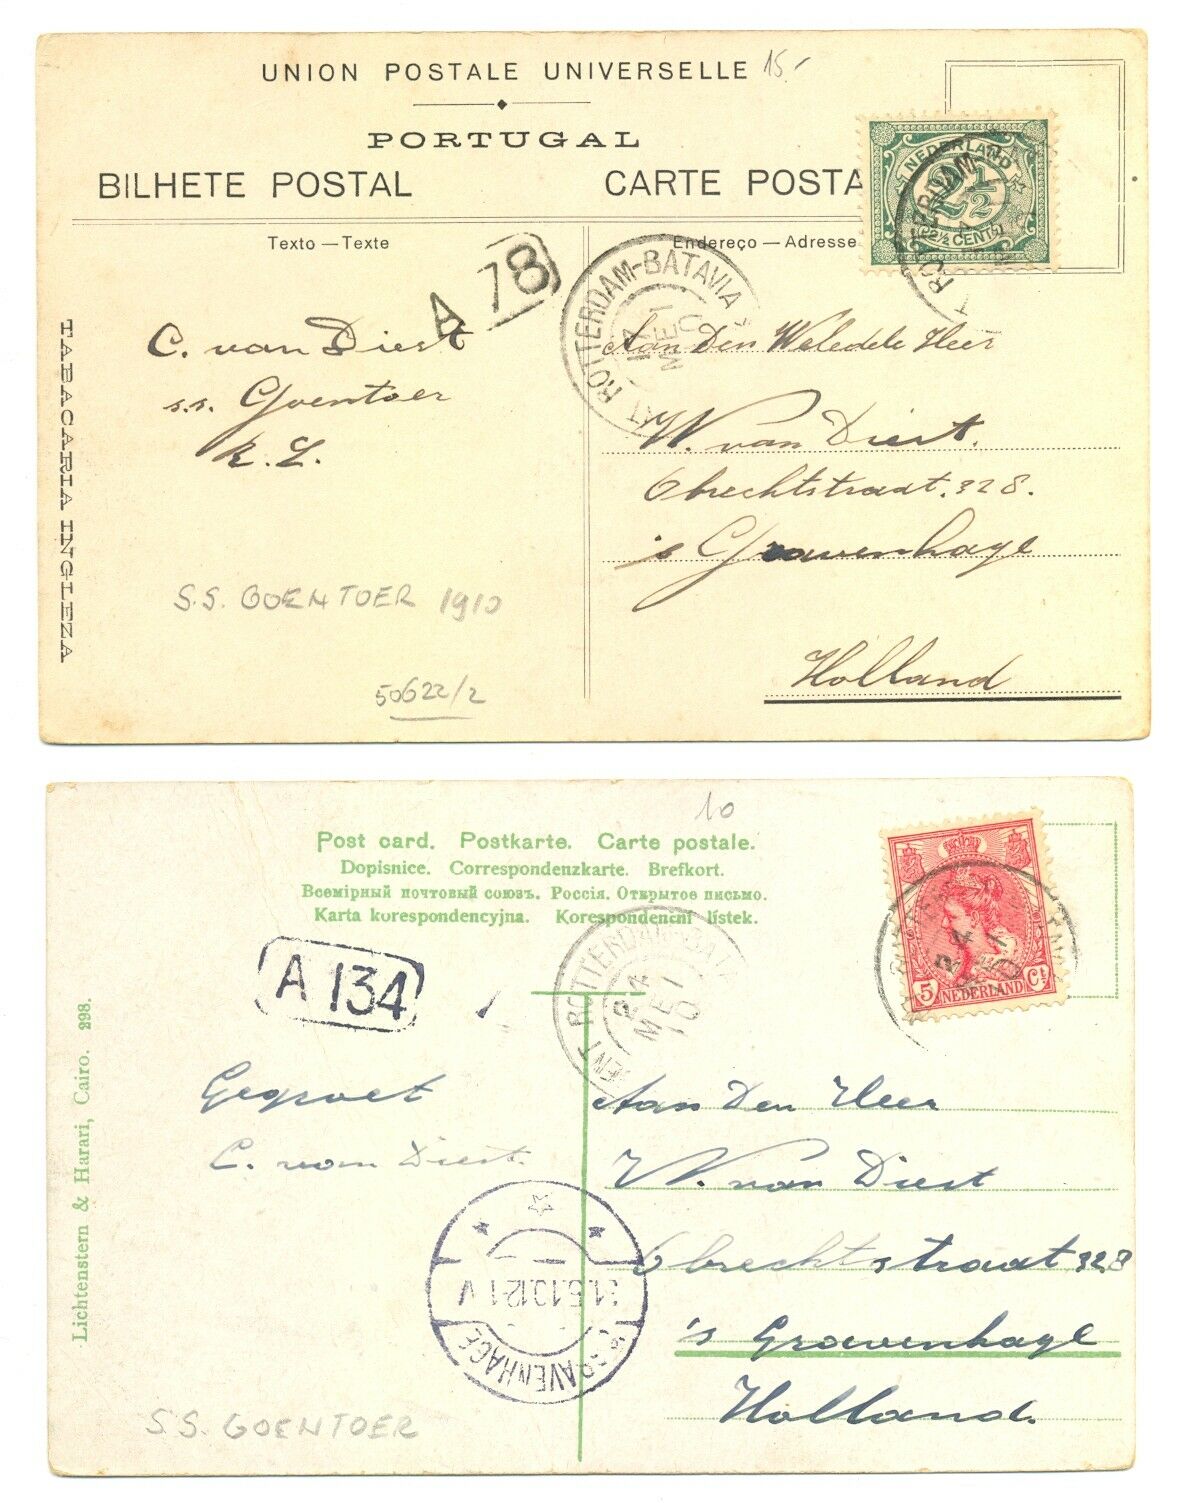 UNION POSTALE UNIVERSELLE
15.-
PORTUGAL
BILHETE POSTAL
CARTE POSTA
NEDERLAND
2 1/2
2½ CENT
Texto — Texte
Endereço — Adresse
A 78
ROTTERDAM-BATAVIA
MEI
10
C. van Diest
s.s. Goentoer
R. L.
Aan Den Weledele Heer
W. van Diest.
Obrechtstraat. 328.
's Gravenhage
Holland
TABACARIA INGLEZA
S.S. GOENTOER 1910
50622/2
10
Post card. Postkarte. Carte postale.
Dopisnice. Correspondenzkarte. Brefkort.
Всемірный почтовый союзъ. Россія. Открытое письмо.
Karta korespondencyjna. Korespondenční lístek.
5 NEDERLAND Ct
A 134
ENT ROTTERDAM-BATA
24
MEI
10
Gegroet
C. van Diest.
Aan Den Heer
W. van Diest
Obrechtstraat 328
's Gravenhage
Holland.
Lichtenstern & Harari, Cairo. 298.
31.5.10.12-1 V
'S GRAVENHAGE
S.S. GOENTOER